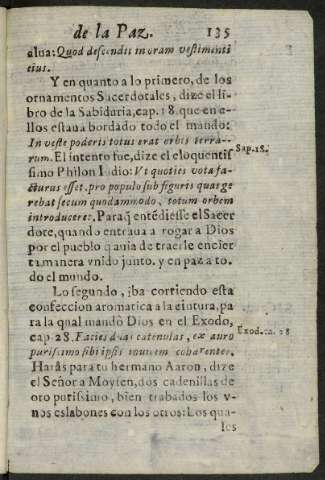 de la Paz. 135
alua: Quod descendit in oram vestimenti
eius.
Y en quanto a lo primero, de los
ornamentos Sacerdotales, dize el li-
bro de la Sabiduria, cap. 18. que en e-
llos estaua bordado todo el mundo:
In veste poderis totus erat orbis terra-
rum. El intento fue, dize el eloquentis-
simo Philon Iudio: Vt quoties vota fa-
cturus esset, pro populo sub figuris quas ge
rebat secum quodammodo, totum orbem
introduceret, Paraq̃ entẽdiesse el Sacer
dote, quando entraua a rogar a Dios
por el pueblo q̃ auia de traerle en cier
ta manera vnido junto, y en paz a to-
do el mundo.
Sap. 18.
Lo segundo, iba corriendo esta
confeccion aromatica a la cintura, pa
ra la qual mandò Dios en el Exodo,
cap. 28. Facies duas catenulas, ex auro
purissimo sibi ipsis inuicem cohærentes,
Haràs para tu hermano Aaron, dize
el Señor a Moysen, dos cadenillas de
oro purissimo, bien trabados los v-
nos eslabones con los otros: Los qua-
los
Exod. ca. 28